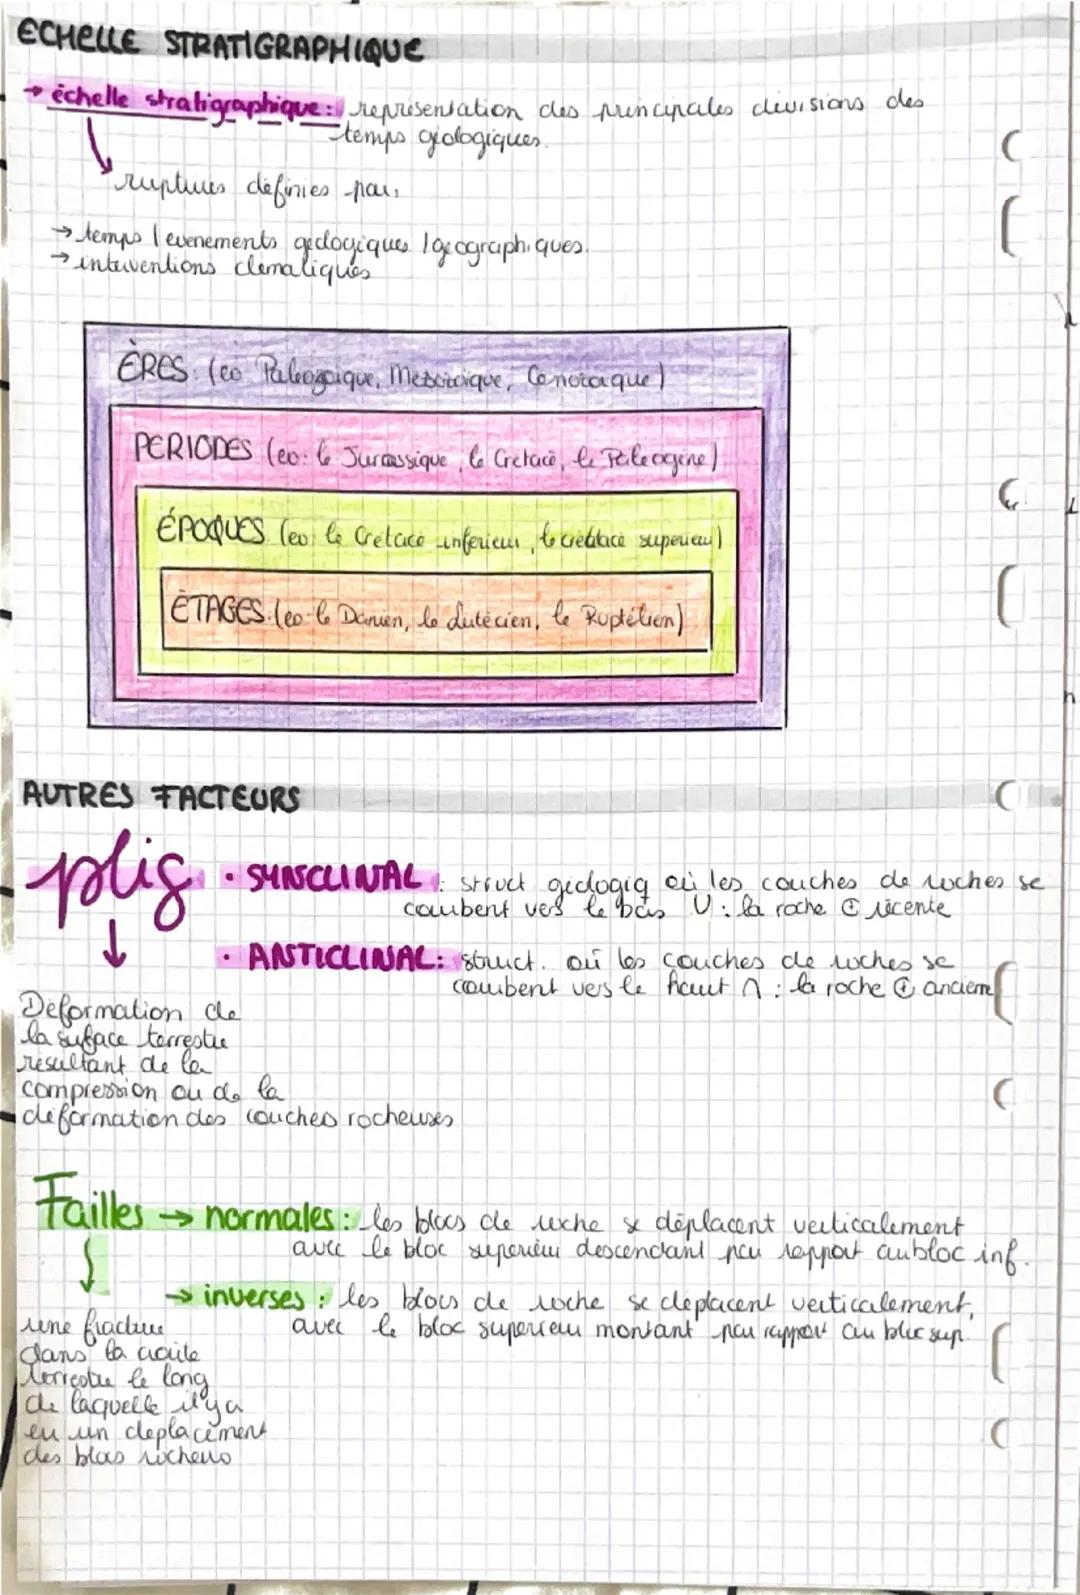 ECHELLE STRATIGRAPHIQUE
→ échelle stratigraphique: représentation des principales divisions des
temps géologiques.
ruptures définies par:
→ temps / evenements géologiques / géographiques.
→ interventions climatiques
ÈRES: (ex: Paléozoique, Mésozoique, Cénozoique)
PERIODES (ex: le Jurassique, le Crétacé, le Paléogène)
ÉPOQUES (ex: le Crétacé inférieur, le crétacé supérieur)
ÉTAGES: (ex: le Danien, le Lutécien, le Ruptélien)
AUTRES FACTEURS
plis
· SYNSCLINAL : struct géologiq où les couches de roches se
courbent vers le bas U : la roche ⊕ récente
· ANTICLINAL: struct. où les couches de roches se
courbent vers le haut ∩ : la roche ⊕ ancienne
Déformation de
la surface terrestre
résultant de la
compression ou de la
déformation des couches rocheuses
Failles → normales: les blocs de roche se déplacent verticalement
avec le bloc supérieur descendant par rapport au bloc inf.
→ inverses : les blocs de roche se déplacent verticalement,
avec le bloc supérieur montant par rapport au bloc sup.
une fracture
dans la croûte
terrestre le long
de laquelle il y a
eu un déplacement
des blocs rocheux